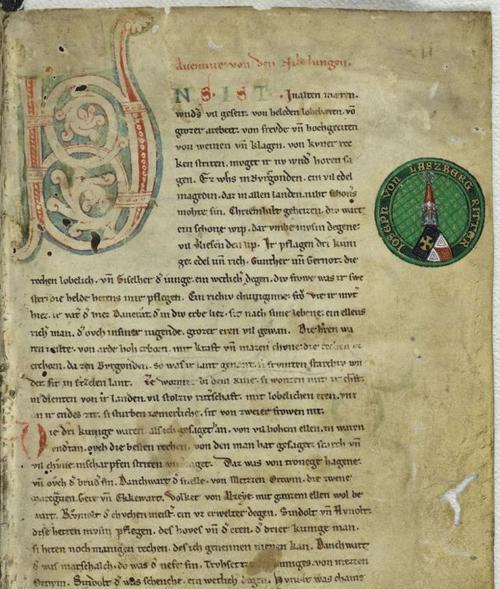 Auenture von den Nibelungen.
VNS. IST. Jn alten mæren.
wnders vil geseit. von heleden lobebæren. võ
grozer arebeit. von freude vñ hochgeciten
von weinen vñ klagen. von kvner rec
ken striten. mvget ir nv wnder horen sa
gen. Ez whs in Bvrgonden. ein vil edel
magedin. daz in allen landen. niht schoners
mohte sin. Chriemhilt geheizen. div wart
ein schone wip. dar vmbe mvsin degene
vil vliesen den lip. Ir pflagen dri kuni
ge. edel vñ rich. Gunther vñ Gernot. die
rechen lobelich. vñ Giselher d iunge. ein wetlich degen. div frowe was ir swe
ster. die helde hetens inir pflegen. Ein richiv chuniginne. frǒ Vte ir mvt
hiez. ir vater d hiez Dancrat. d in div erbe liez. sit nach sime lebene. ein ellens
rich man. d ovch in siner iugende. grozer eren vil gewan. Die hren wa
ren milte. von arde hoh erborn. mit kraft vñ mazen chvne. die rechen vz
erchorn. da zen Bvrgonden. so was ir lant genant. si frvmten starchiv wn
der. sit in Ezelen lant. Ze wormz bi dem Rine. si wonten mit ir chraft.
in dienten von ir landen. vil stolziv ritterschaft. mit lobelichen eren. vnz
an ir endes zit. si sturben iæmerliche. sit von zweier frowen nit.
Die dri kunige waren. als ich gesaget han. von vil hohem ellen. in waren
vndertan. ovch die besten rechen. von den man hat gesaget. starch vñ
vil chvne. in scharpfen striten vnverzaget. Daz was von tronege hagene.
vñ ovch d brud sin. Danchwart d snelle. von Metzen Ortwin. die zwene
marcgraven. Gere vñ Ekkewart. Volker von Alzeye. mit ganzem ellen wol be
wart. Rvmolt d chvchenmeister. ein vz erwelter degen. Sindolt vñ Hvnolt.
dise herren mvsin pflegen. des hoves vñ d eren. d drier kunige man.
si heten noch manigen rechen. des ich genennen nienen kan. Danchwart
d was marschalch. do was d nefe sin. Trvhsetze des kuniges. von metzen
Ortwin. Sindolt d was schenche. ein wetlich degen. Hvnolt was chame
IOSEPH VON LASZBERG RITTER